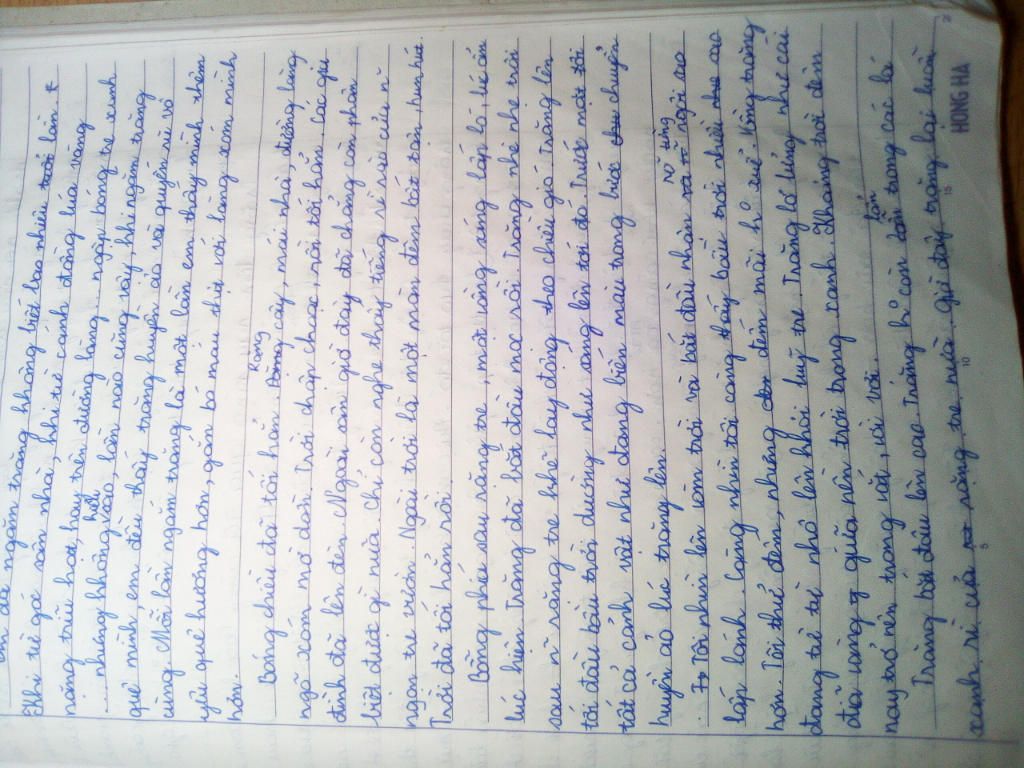 em đã ngắm trăng không biết bao nhiêu lần.
Khi về gá sân nhà, khi từ cánh đồng lúa vàng
nặng trĩu hạt, hay trên đường làng, ngập bóng tre xanh
nhưng không hiểu sao, lần nào cũng vậy, khi ngắm trăng
quê mình, em đều thấy trăng huyền ảo và quyến rũ vô
cùng. Mỗi lần ngắm trăng là một lần em thấy mình thêm
yêu quê hương hơn, gắn bó máu thịt với làng xóm mình
hơn.
Bóng chiều đã tối hẳn. Rặng cây, mái nhà, đường làng
ngõ xóm mờ dần. Trời chập choạc, rồi tối hẳn. Các gia
đình đã lên đèn. Ngoài gìa đây đã chẳng còn phân
biệt được gì nữa. Chỉ còn nghe thấy tiếng rì rào của n
ngọn tre vườn. Ngoài trời là một màn đêm bát tàn, hun hút.
Trời đã tối hẳn rồi.
Bỗng phía sau rặng tre, một vàng sáng lấp ló, lúc ẩn
lúc hiện. Trăng đã bắt đầu mọc rồi. Trăng nhè nhẹ trôi
sau n rặng tre khẽ lay động theo chiều gió. Trăng lên
tới đâu bầu trời dường như sáng lên tới đó. Trước mắt tôi
tất cả cảnh vật như đang biến màu trong phút chuyển
huyền ảo lúc trăng lên.
Tôi nhìn lên vòm trời và bắt đầu nhận rõ từng ngôi sao
lấp lánh. Càng nhìn tôi càng thấy bầu trời chiều sao cao
hơn. Tôi thử đếm, nhưng đếm mãi k° xuể. Vầng trăng
đang từ từ nhô lên khỏi luỹ tre. Trăng lơ lửng như cái
đĩa vàng giữa nền trời trong xanh. Khoảng trời đêm
nay trở nên trong vắt, vời vợi.
Trăng bắt đầu lên cao. Trăng k° còn lẩn trong các lá
xanh rì của rặng tre nữa. Giờ đây trăng lại luồn
5
10
15
20
HONG HA